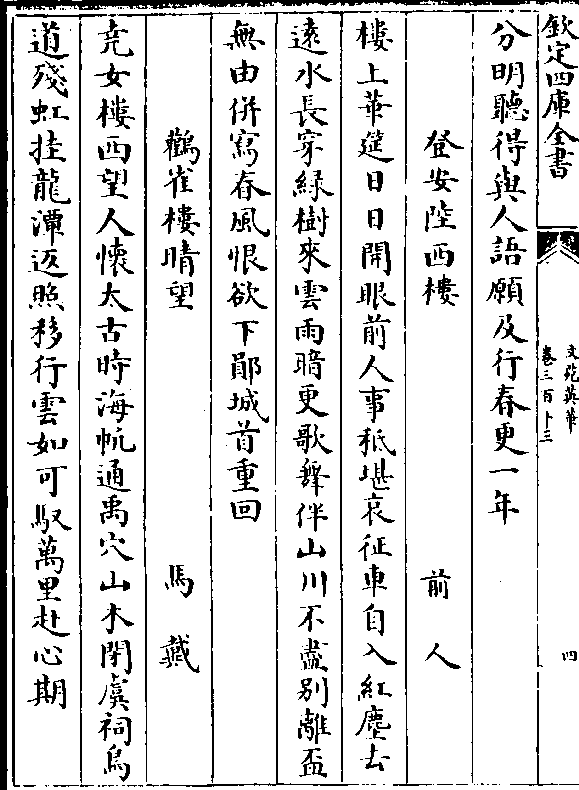 欽定四庫全書
文苑英華
卷三百十三
四
分明聽得與人語願及行春更一年
登安陸西樓
前人
樓上華筵日日開眼前人事秪堪哀征車自入紅塵去
遠水長穿綠樹來雲雨暗更歌舞伴山川不盡别離盃
無由併寫春風恨欲下鄖城首重回
鸛雀樓晴望
馬戴
堯女樓西望人懷太古時海帆通禹穴山木閉虞祠鳥
道殘虹挂龍潭返照移行雲如可馭萬里赴心期